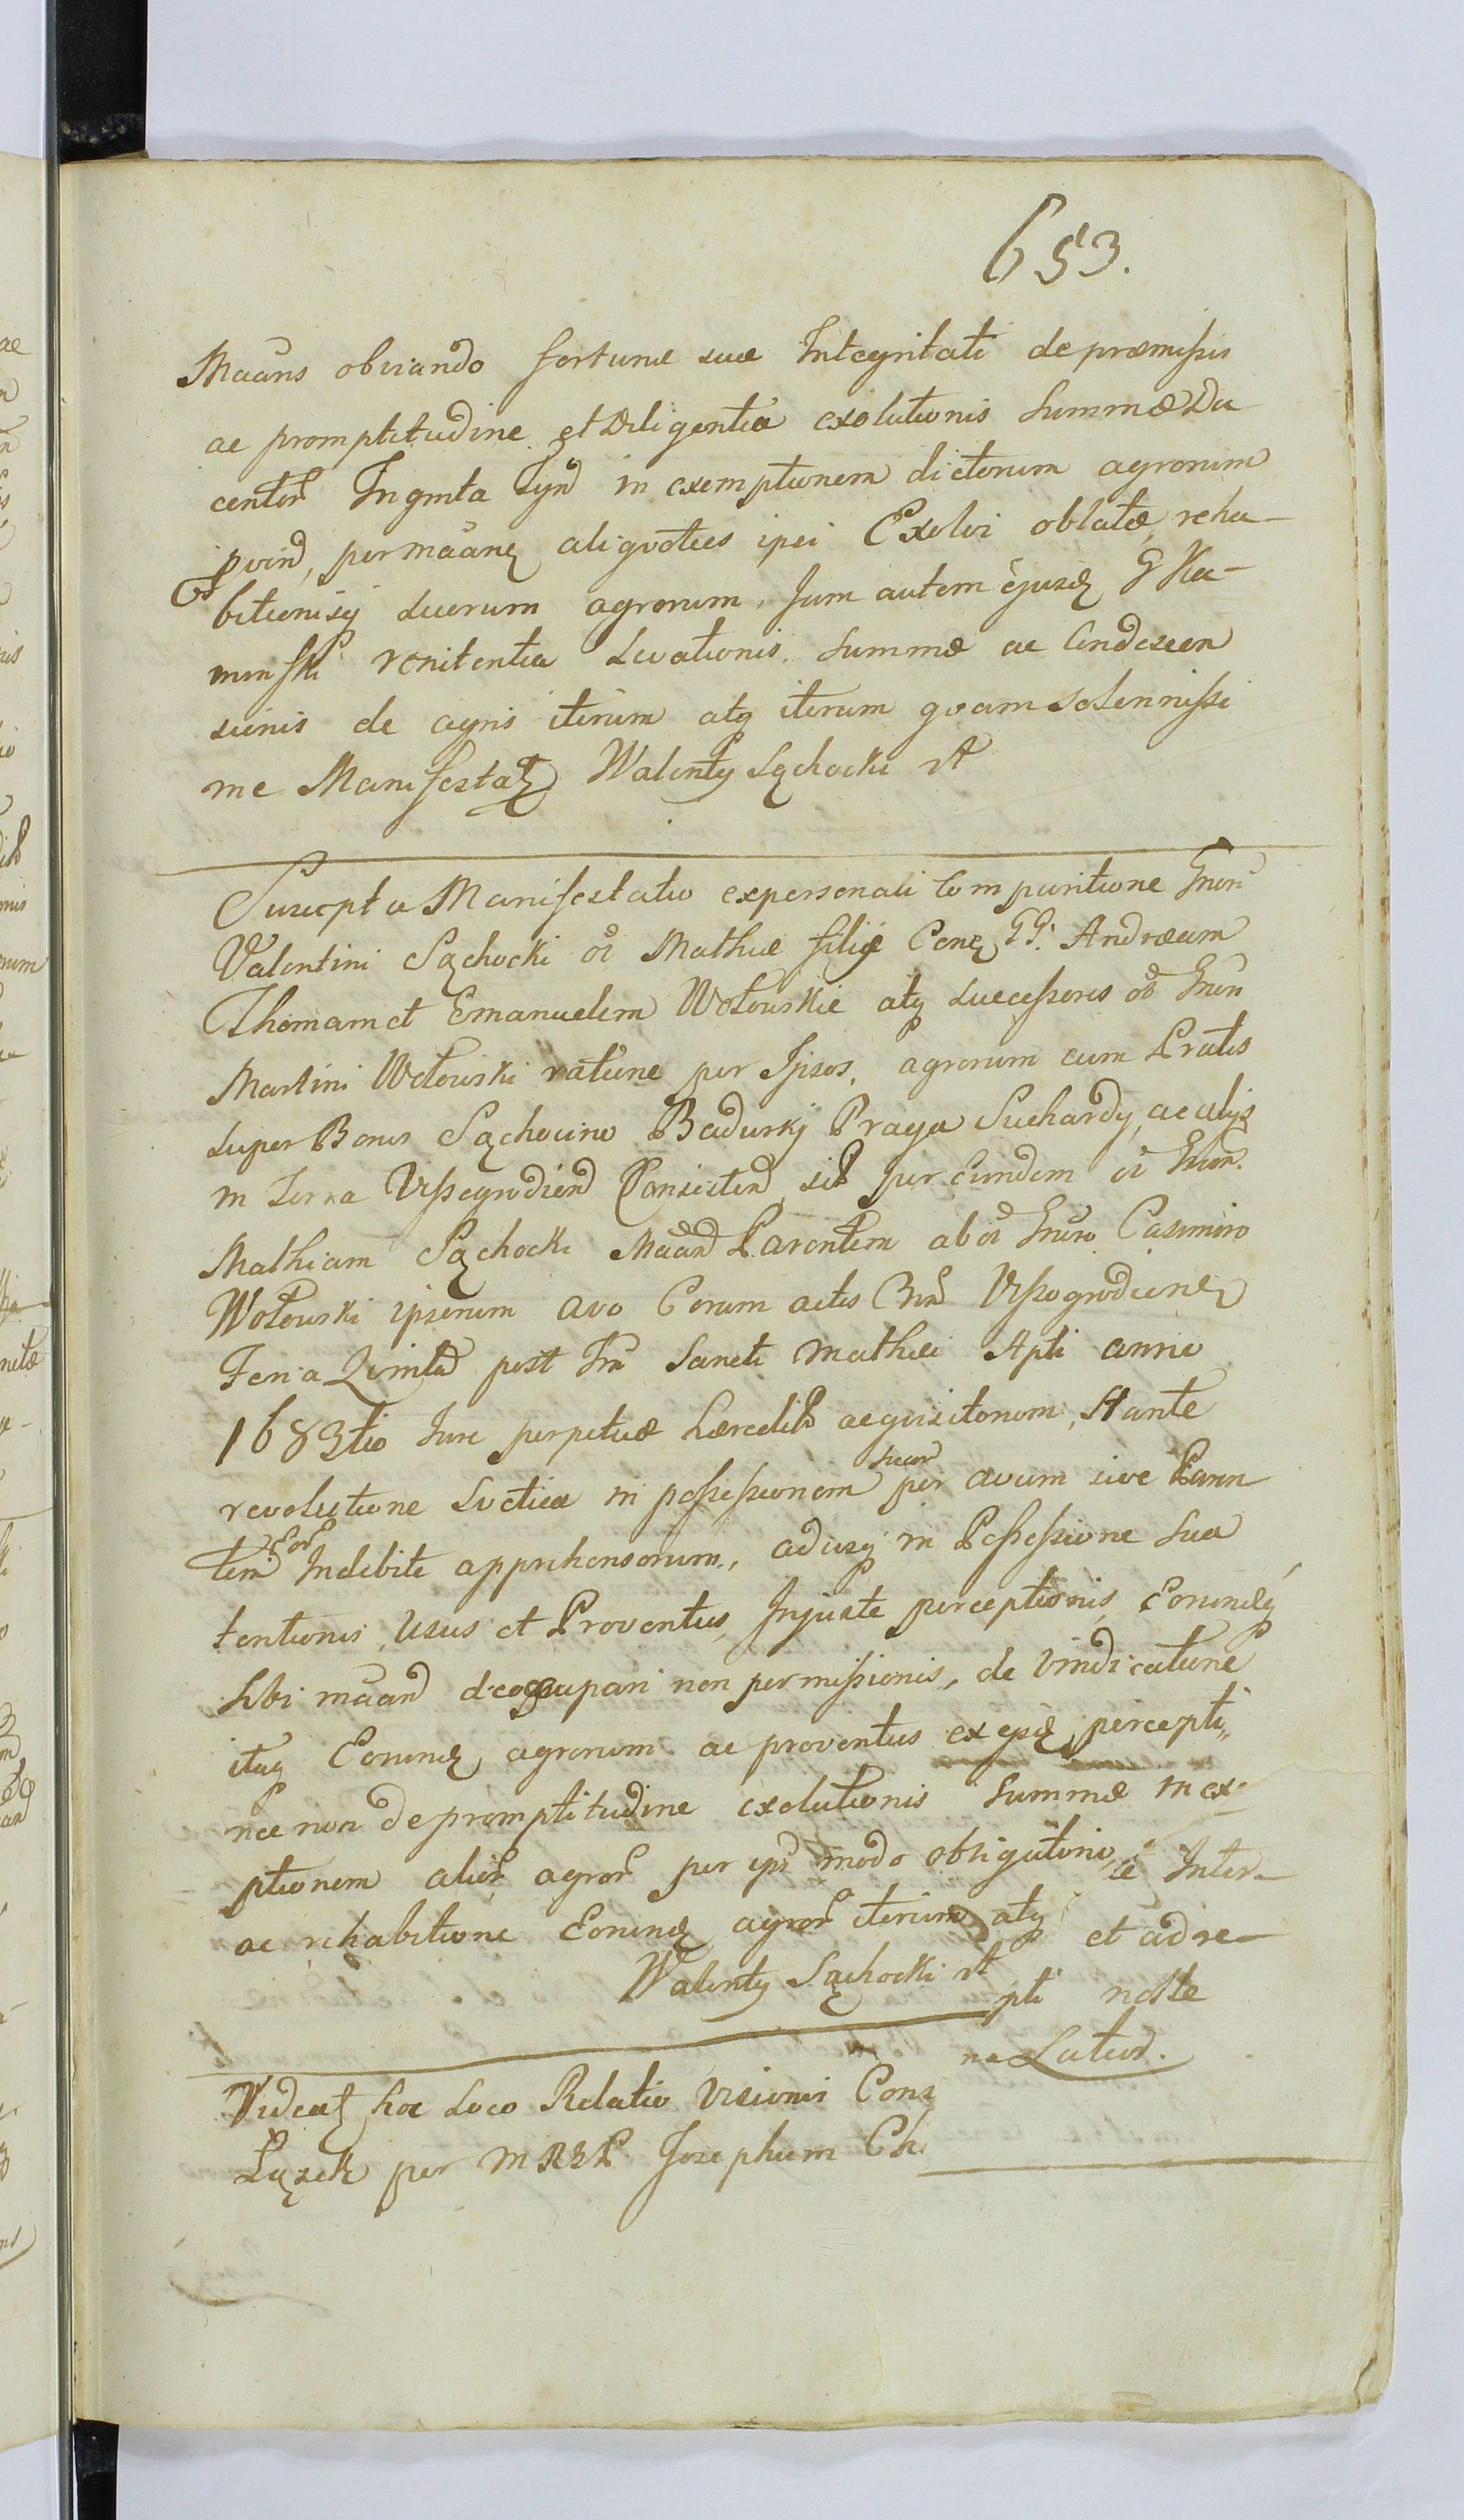 653.
Maans obviando fortunæ suæ Integritati de præmissis
ac promptitudine et diligentia exolutionis Summæ Du
centor Ingnta Tynd in exemptionem dictorum agrorum
pvind, per maanz aliqvoties ipsi Exolvi oblatæ, reha-
bitionisq suorum agrorum, tum autem ejusd G Ka-
minski renitentia Levationis Summæ ac Condescen
sionis de agris iterum atq iterum qvam solennissi
me Manifestat Walenty Sąchocki st
Suscepta Manifestatio ex personali Comparitione Gnen
Valentini Sąchocki oi Mathiæ filij Conz GG. Andream
Thomam et Emanuelem Wołowskie atq successores oi Gnen
Martini Wołowski ratione per Ipsos, agrorum cum Pratis
super Bonis Sąchocino Badurky Praga Suchardy, ac alijs
in Terra Vissegrodien Consisten sib per eundem oi Gnen.
Mathiam Sąchocki Maan Parentem ab oi Gneno Casimiro
Wołowski ipsorum avo Coram actis Vissogrodienz
Feria Qvinta post Sancti Mathæi Apli anno
1683tio Jure perpetuæ hæredit acqvisitorum, Stante
revolutione Svetica in possessionem suam per avum sive Paren
tem Eor Indebite apprehensorum, adusq in Possessione sua
tentionis, Usus et Proventus, Injuste perceptionis, Eorundq
sibi maan deoccupari non permissionis, de vindicatione
itaq Eorund, agrorum ac proventus ex ipsis percepti
nec non de promptitudine exolutionis Summæ in ex
ptionem alior agror per ips modo obligatorio
ac rehabitione Eorund agror iterum atq
Walenty Sąchocki st
Inter-
et ad re-
pti nocte
Latus.
Videat hoc Loco Relatio Visionis Cons
Łązek per MRSP Josephum Ch